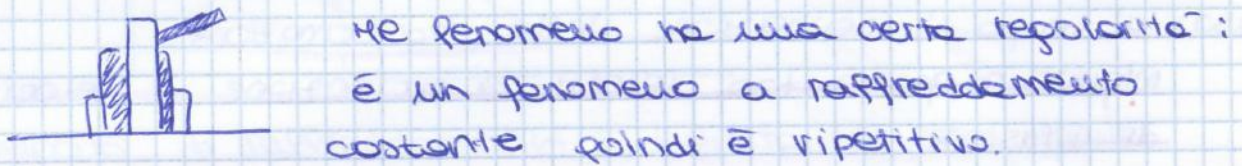 Il fenomeno ha una certa regolarità:
è un fenomeno a raffreddamento
costante quindi è ripetitivo.